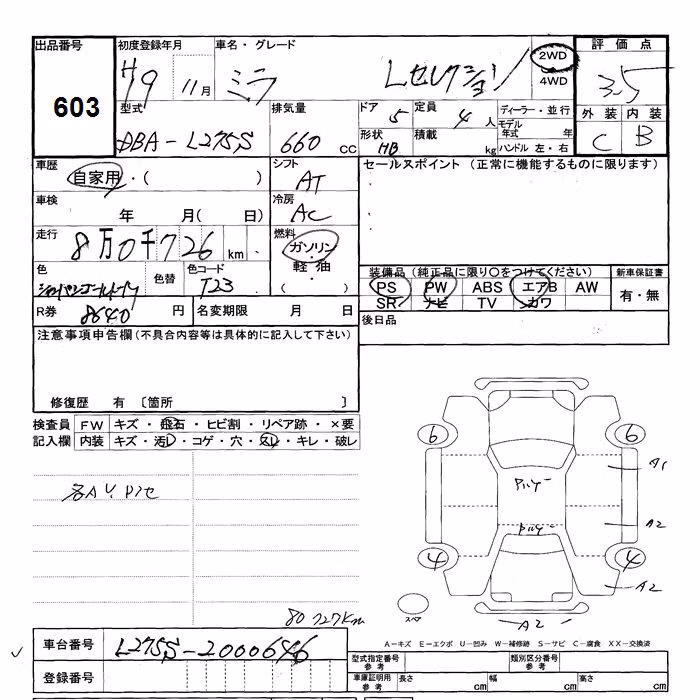 出品番号 初度登録年月 車名・グレード 評価点
603
H19 11月 ミラ Lセレクション 2WD 4WD 3.5
外装 内装
C B
型式 排気量 ドア 定員 ディーラー・並行
DBA-L275S 660 CC 5 4人 モデル年式 年
形状 積載 ハンドル 左・右
HB kg
車歴 シフト セールスポイント (正常に機能するものに限ります)
自家用・( ) AT
車検 冷房
年 月( 日) AC
走行 燃料
8万0千726km ガソリン・軽油
( )
色 色替 色コード
T23
装備品 (純正品に限り○をつけてください) 新車保証書
PS PW ABS エアB AW 有・無
SR ナビ TV カワ
R券 8640円 名変期限 月 日
後日品
注意事項申告欄(不具合内容等は具体的に記入して下さい)
修復歴 有 〔箇所 〕
検査員 FW キズ・飛石・ヒビ割・リペア跡・×要
記入欄 内装 キズ・汚レ・コゲ・穴・スレ・キレ・破レ
6 6
A1
A2
4 4
A2
スペア
A2
80727Km
A-キズ E-エクボ U-凹み W-補修跡 S-サビ C-腐食 XX-交換済
車台番号 L275S-2000646
型式指定番号 参考 類別区分番号 参考
登録番号
車庫証明用 参考 長さ cm 幅 cm 高さ cm